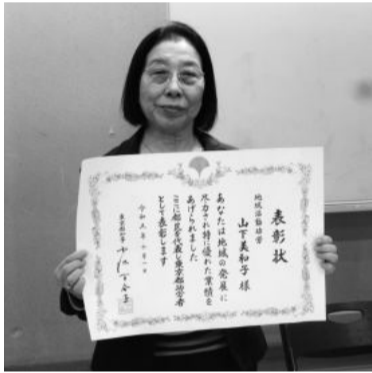 表彰状
地域活動功労
山下美和子 様
あなたは地域の発展に
尽力され特に優れた業績を
あげられました
ここに都民を代表し東京都功労者
として表彰します
東京都知事 小池百合子